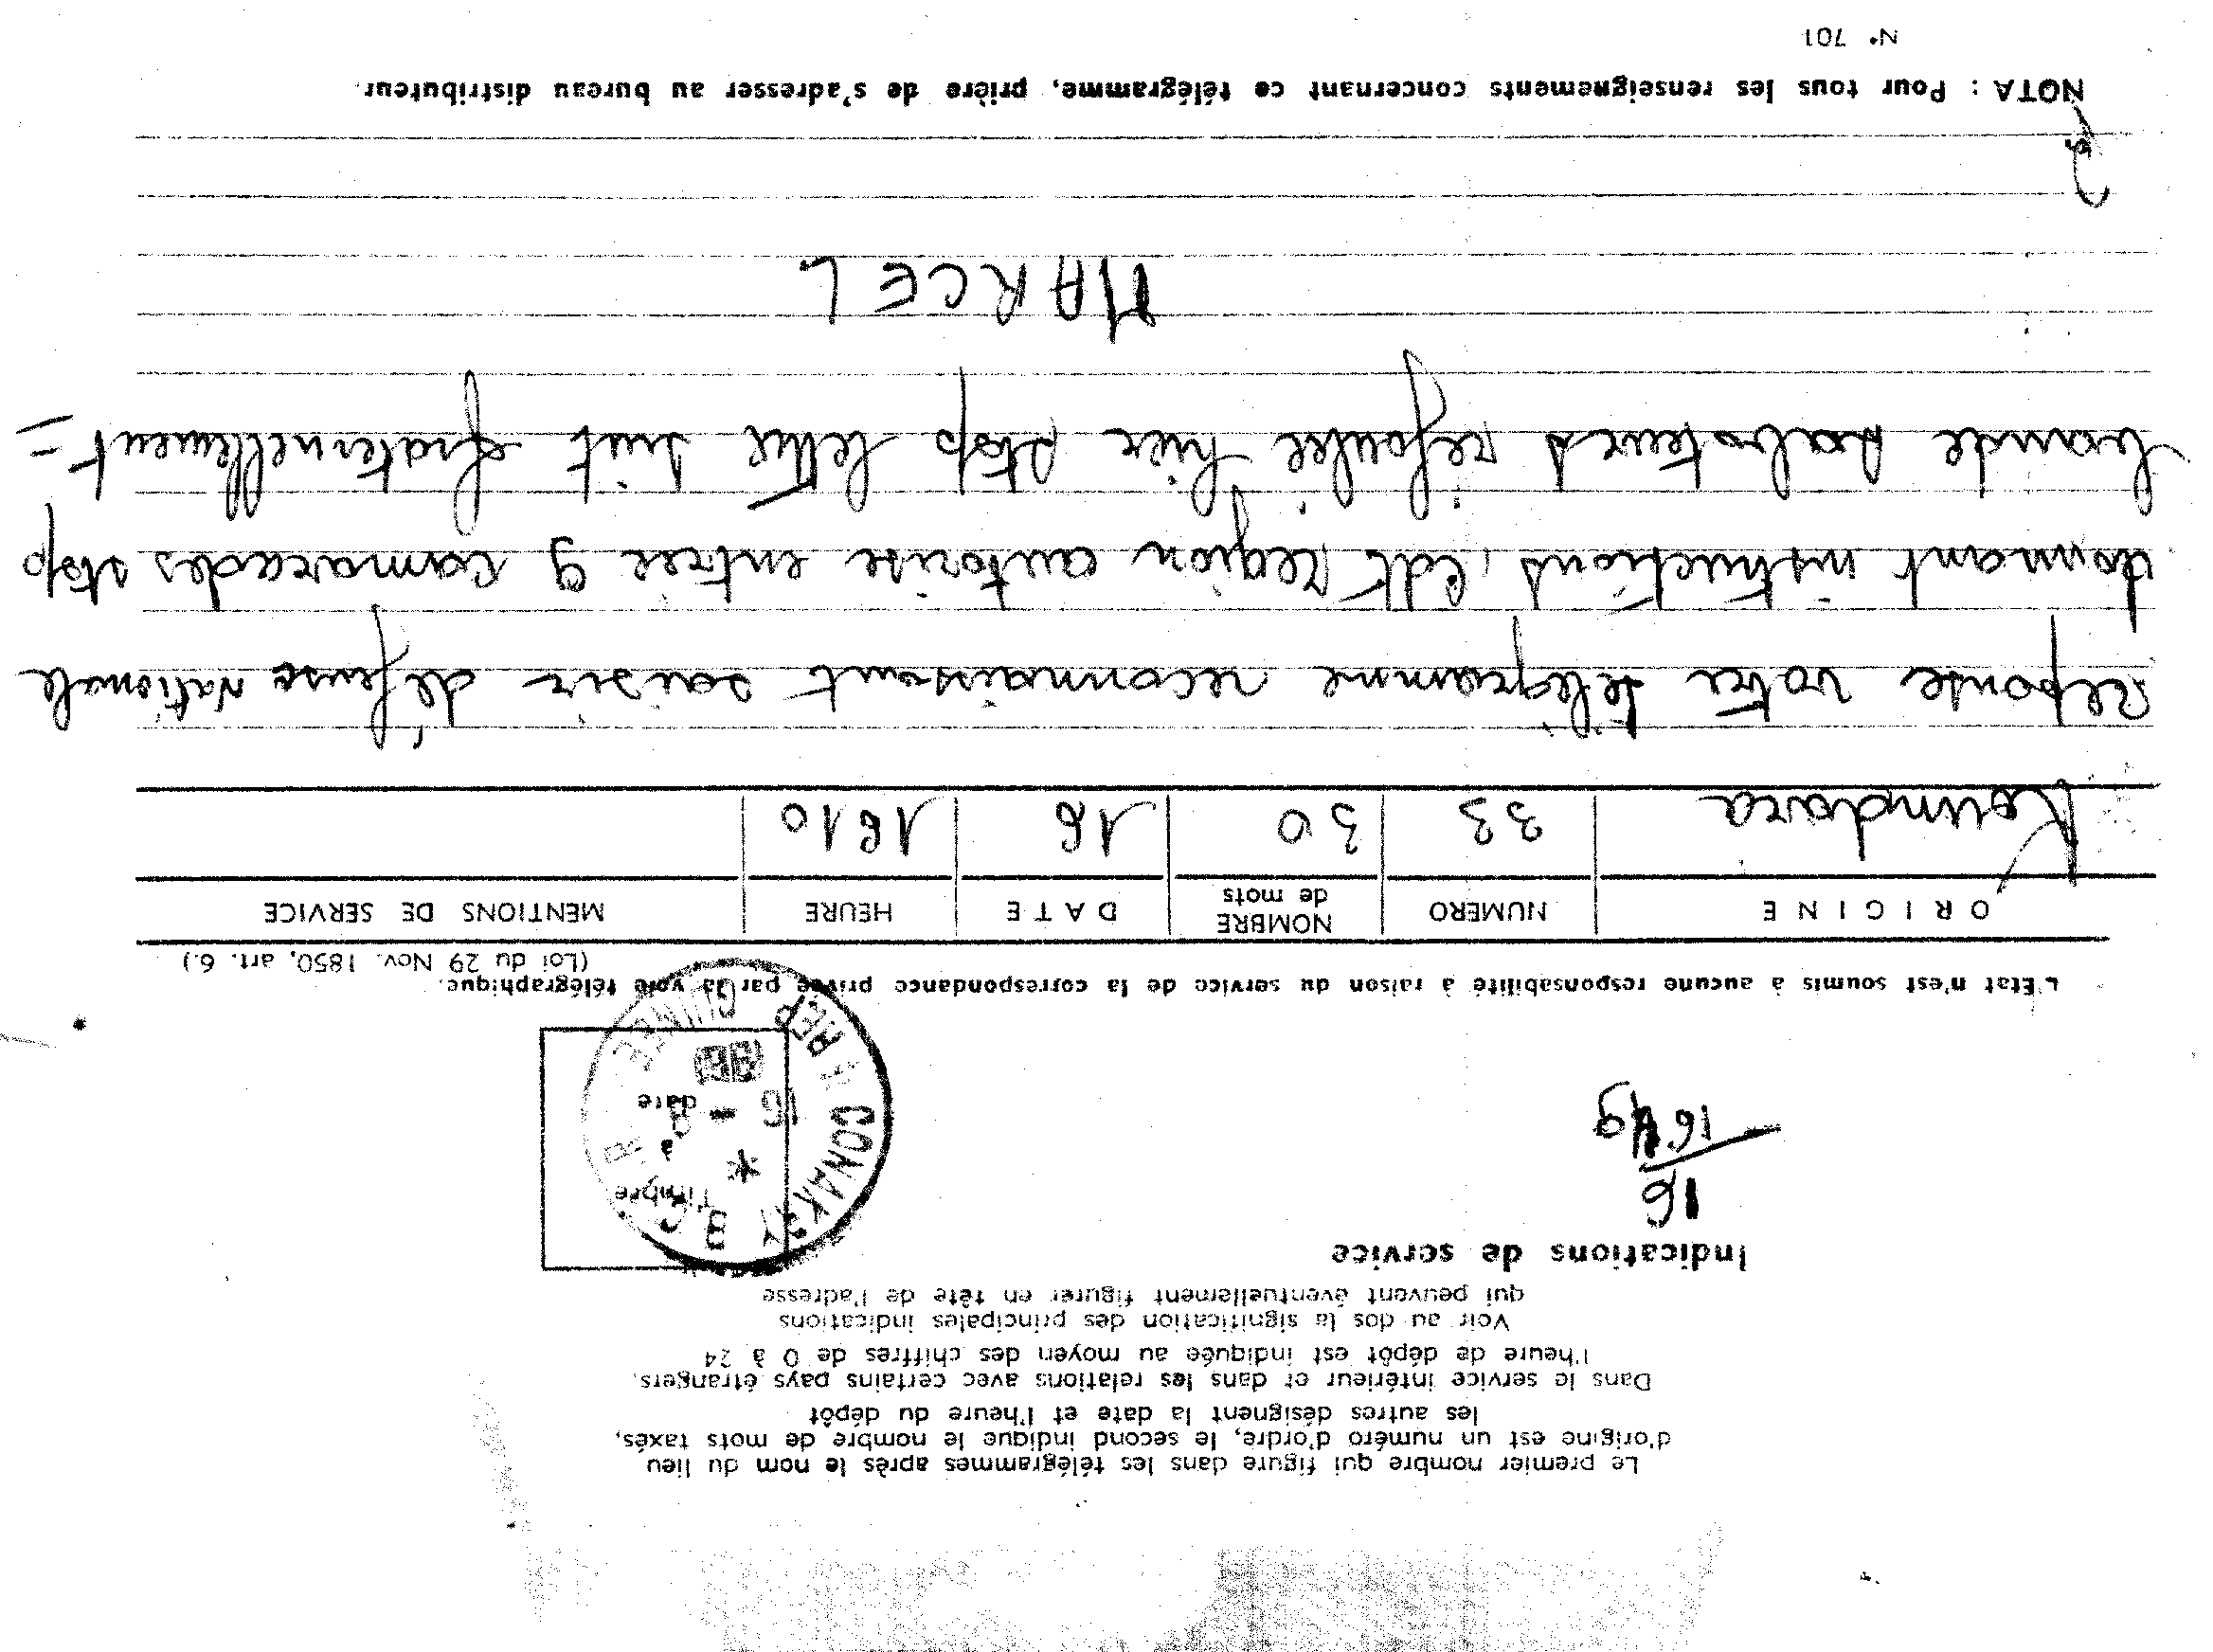 Le premier nombre qui figure dans les télégrammes après le nom du lieu
d'origine est un numéro d'ordre, le second indique le nombre de mots taxés,
les autres désignent la date et l'heure du dépôt
Dans le service intérieur et dans les relations avec certains pays étrangers,
l'heure de dépôt est indiquée au moyen des chiffres de 0 à 24
Voir au dos la signification des principales indications
qui peuvent éventuellement figurer en tête de l'adresse
Indications de service
16
16
Timbre
à
date
CONAKRY
REP. GUINEE
16 - 8
L'Etat n'est soumis à aucune responsabilité à raison du service de la correspondance privée par la voie télégraphique.
(Loi du 29 Nov. 1850, art. 6.)
ORIGINE NUMERO NOMBRE de mots DATE HEURE MENTIONS DE SERVICE
Koundara 33 30 16 1610
Réponse votre télégramme reconnaissant saisir défense Nationale
donnant instructions Cdt Région autorise entrée 9 camarades stop
bande saboteurs refoulée hier stop lettre suit fraternellement =
MARCEL
NOTA : Pour tous les renseignements concernant ce télégramme, prière de s'adresser au bureau distributeur.
N° 701